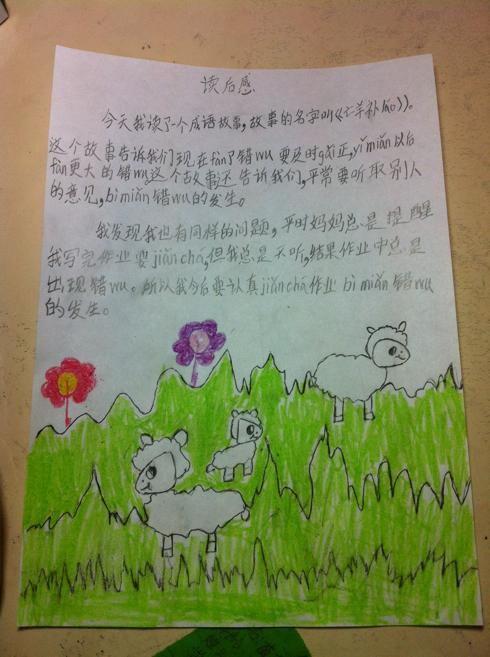 读后感
今天我读了一个成语故事,故事的名字叫《亡羊补láo》。
这个故事告诉我们现在fàn了错wu要及时gǎi正,yǐmiǎn以后
fàn更大的错wu,这个故事还告诉我们,平常要听取别人
的意见,bìmiǎn错wu的发生。
我发现我也有同样的问题,平时妈妈总是提醒
我写完作业要jiǎnchá,但我总是不听,结果作业中总是
出现错wu。所以我今后要认真jiǎnchá作业bìmiǎn错wu
的发生。